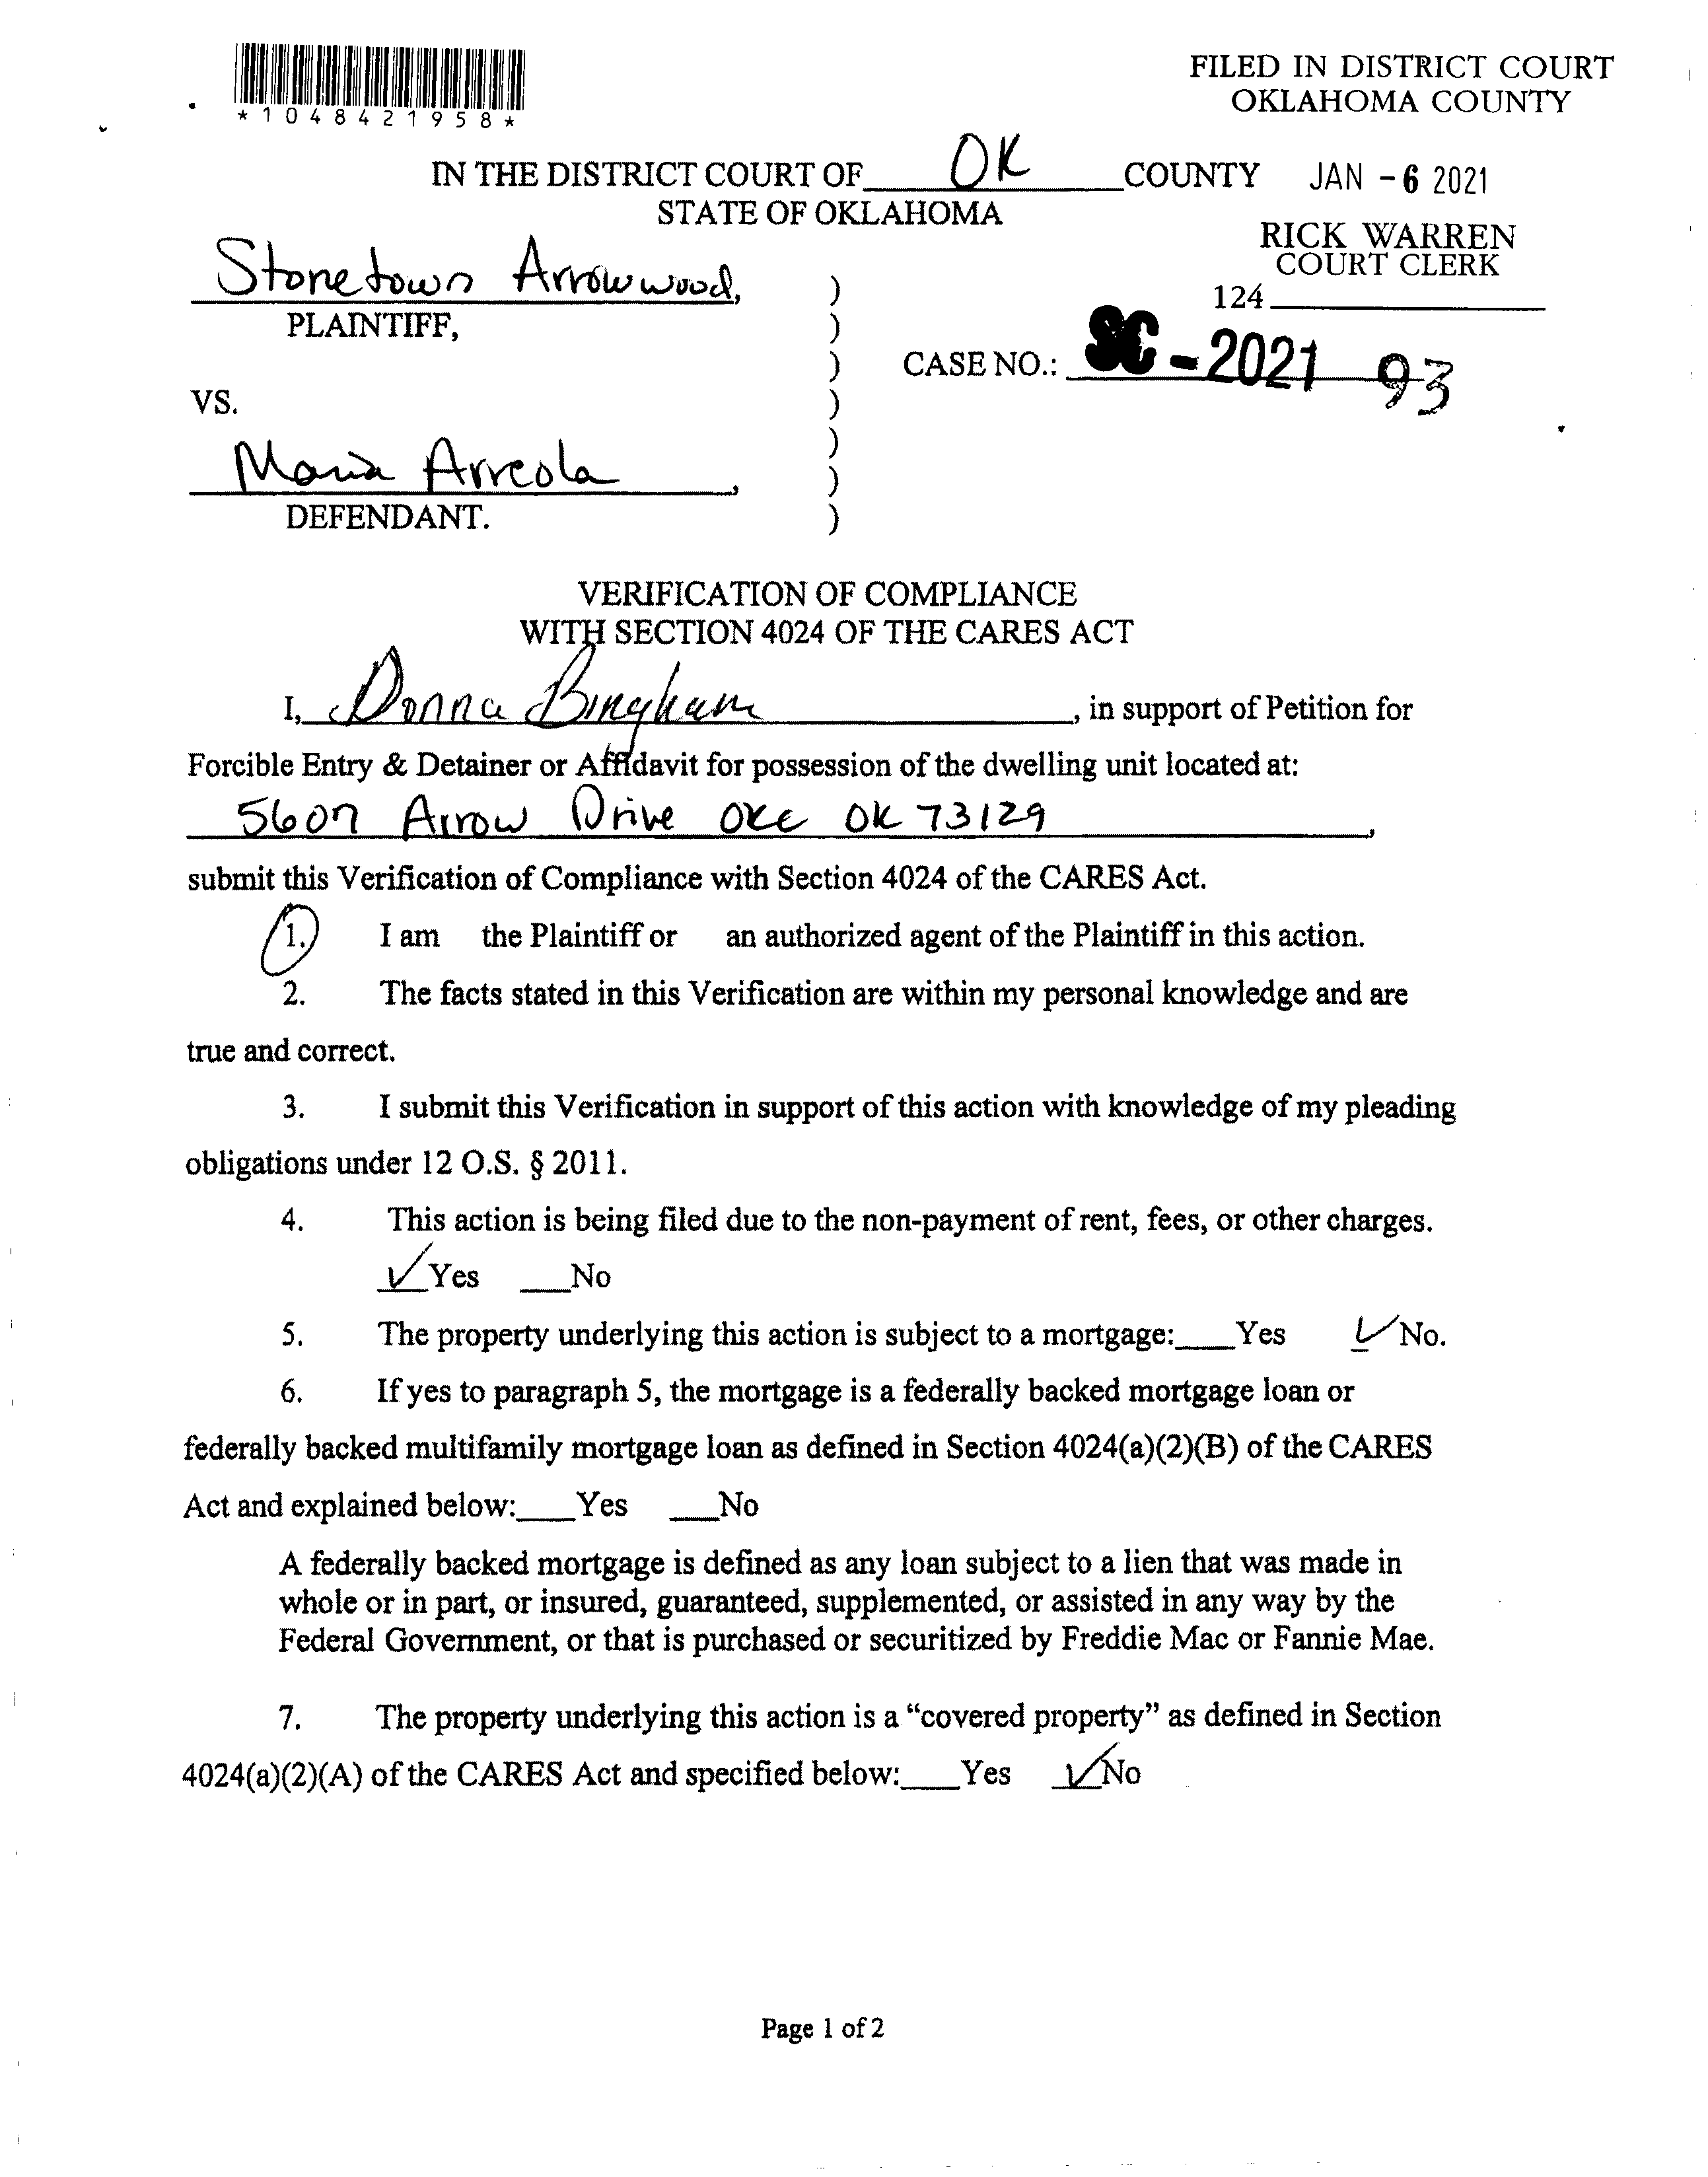 *1048421958*
FILED IN DISTRICT COURT
OKLAHOMA COUNTY
IN THE DISTRICT COURT OF OK COUNTY
JAN -6 2021
STATE OF OKLAHOMA
RICK WARREN
COURT CLERK
124
Stonetown Arrowwood, )
PLAINTIFF, )
)
CASE NO.: SC - 2021 93
VS. )
)
Maria Arreola, )
DEFENDANT. )
VERIFICATION OF COMPLIANCE
WITH SECTION 4024 OF THE CARES ACT
I, Donna Bingham, in support of Petition for
Forcible Entry & Detainer or Affidavit for possession of the dwelling unit located at:
5607 Arrow Drive OKC OK 73129,
submit this Verification of Compliance with Section 4024 of the CARES Act.
1. I am the Plaintiff or an authorized agent of the Plaintiff in this action.
2. The facts stated in this Verification are within my personal knowledge and are
true and correct.
3. I submit this Verification in support of this action with knowledge of my pleading
obligations under 12 O.S. § 2011.
4. This action is being filed due to the non-payment of rent, fees, or other charges.
✓Yes __No
5. The property underlying this action is subject to a mortgage:___Yes ✓No.
6. If yes to paragraph 5, the mortgage is a federally backed mortgage loan or
federally backed multifamily mortgage loan as defined in Section 4024(a)(2)(B) of the CARES
Act and explained below:___Yes ___No
A federally backed mortgage is defined as any loan subject to a lien that was made in
whole or in part, or insured, guaranteed, supplemented, or assisted in any way by the
Federal Government, or that is purchased or securitized by Freddie Mac or Fannie Mae.
7. The property underlying this action is a “covered property” as defined in Section
4024(a)(2)(A) of the CARES Act and specified below:___Yes ✓No
Page 1 of 2